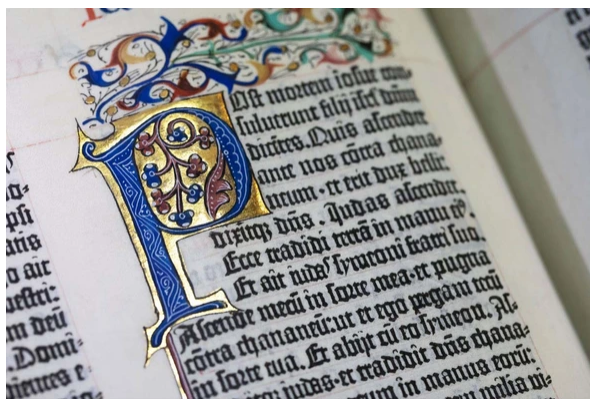 o-
psi
atis
o ait
m deū
Domi-
Post mortem iosue con-
suluerunt filij isrl dūm
dicētes. Quis ascendet
ante nos cōtra chana-
neum · et erit dux belli:
dixitq; dn̄s. Judas ascendet.
Ecce tradidi terrā in manu eiꝰ.
Et ait iudas symeoni fratri suo.
Ascende mecū in sorte mea · et pugna
cōtra chananeū: ut et ego pergam tecū
in sorte tua. Et abijt cū eo symeon. As-
iudas · et tradidit dn̄s chana-
in manus eorū:
milia vi-